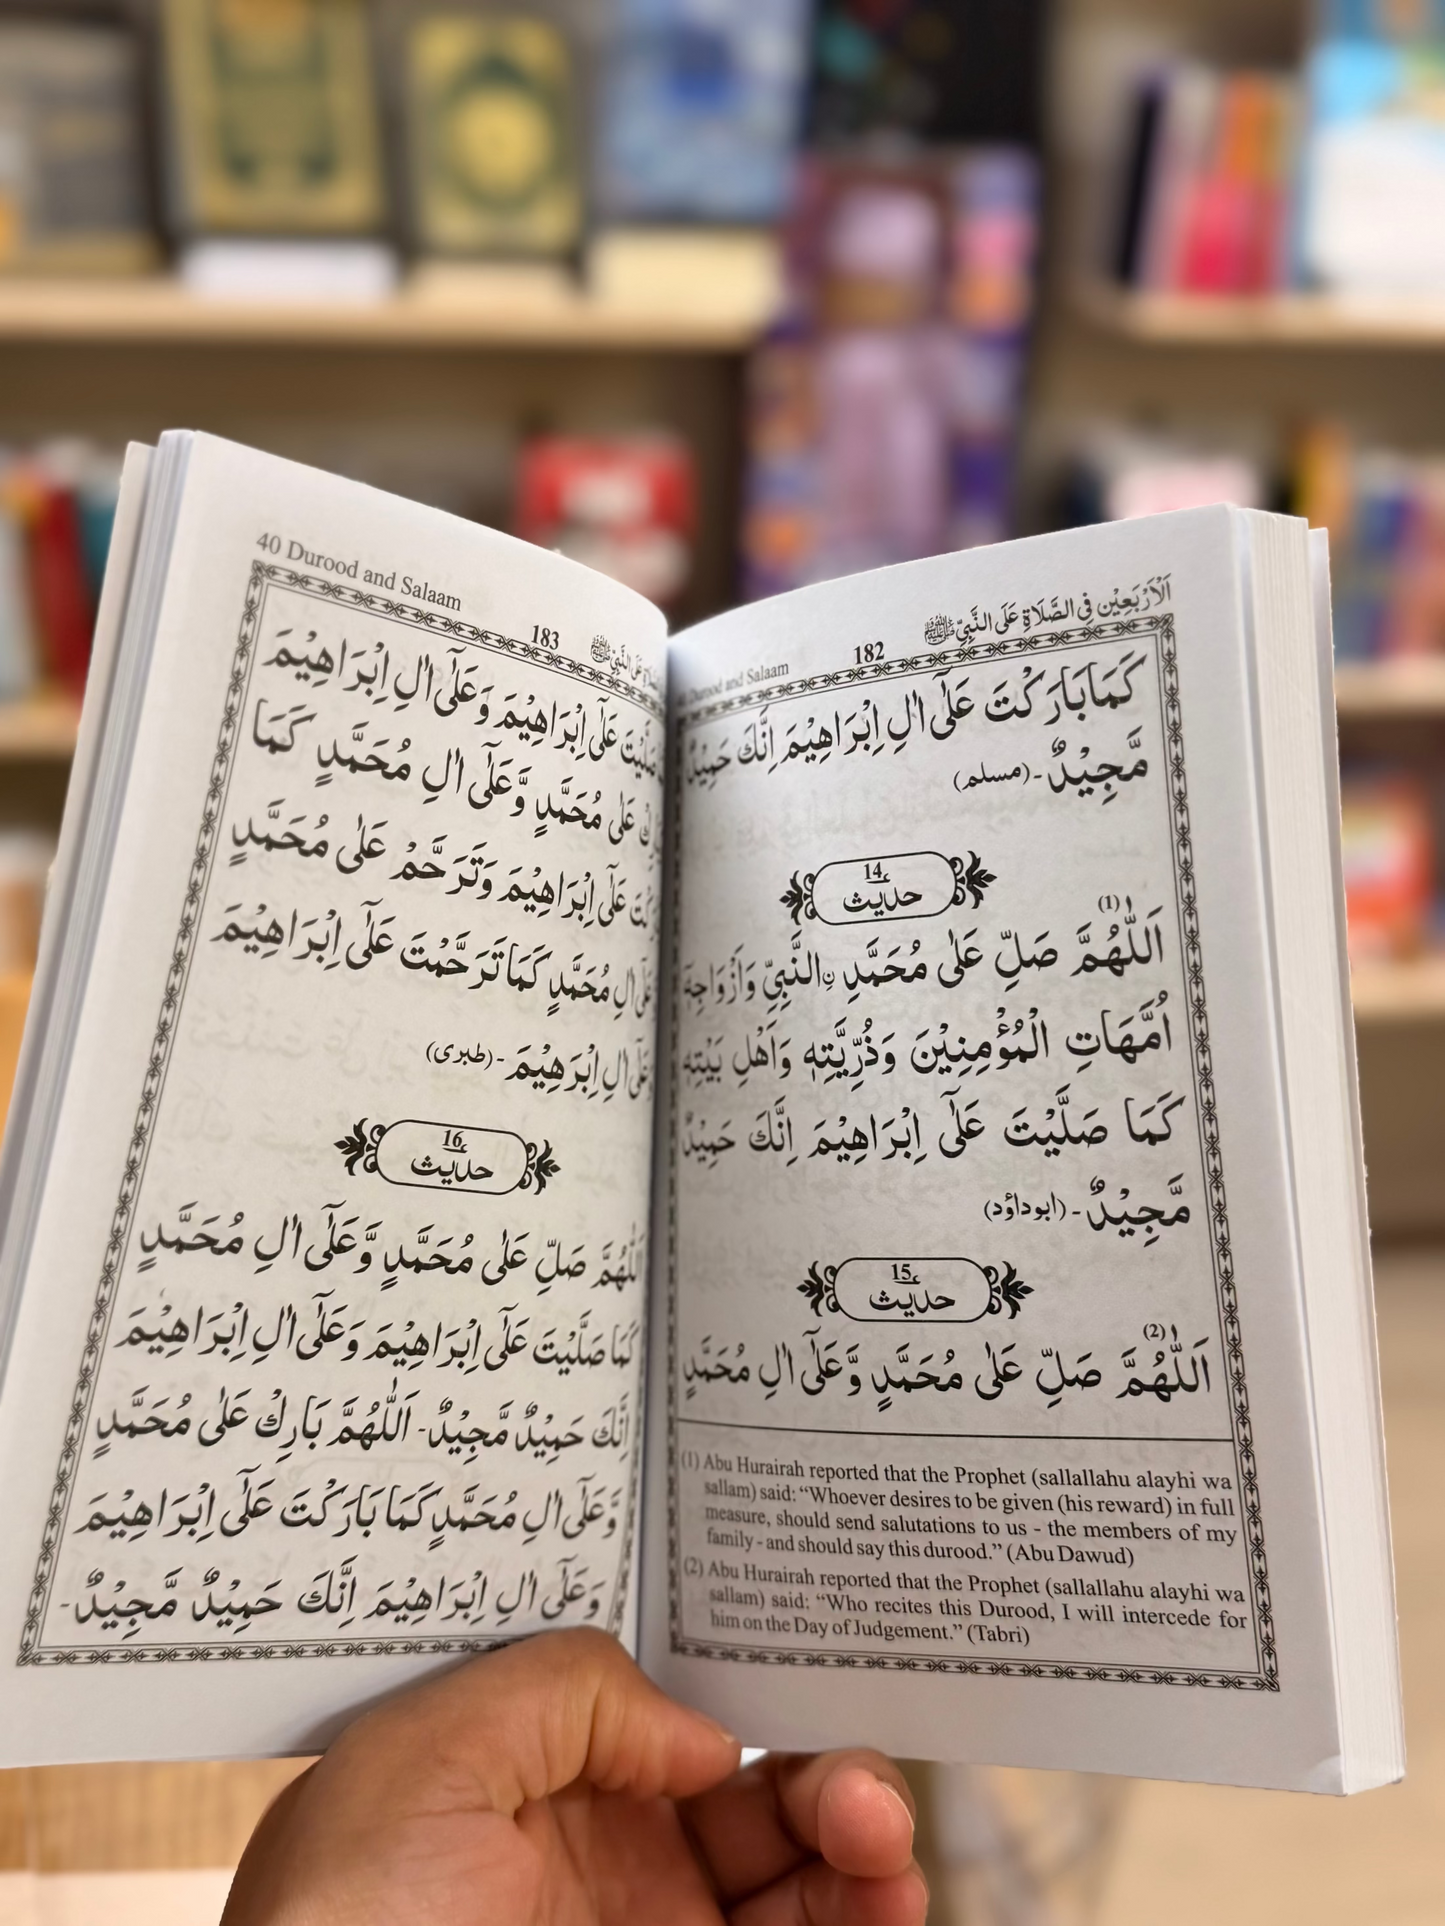 اَلْاَرْبَعِيْن فِى الصَّلَاةِ عَلَى النَّبِىِّ ﷺ
182
Durood and Salaam
كَمَا بَارَكْتَ عَلٰٓى اٰلِ اِبْرَاهِيْمَ اِنَّكَ حَمِيْدٌ
مَّجِيْدٌ۔ (مسلم)
14
حديث
اَللّٰهُمَّ صَلِّ عَلٰى مُحَمَّدِ ۣالنَّبِىِّ وَاَزْوَاجِهٖ (1)
اُمَّهَاتِ الْمُؤْمِنِيْنَ وَذُرِّيَّتِهٖ وَاَهْلِ بَيْتِهٖ
كَمَا صَلَّيْتَ عَلٰٓى اِبْرَاهِيْمَ اِنَّكَ حَمِيْدٌ
مَّجِيْدٌ۔ (ابوداؤد)
15
حديث
اَللّٰهُمَّ صَلِّ عَلٰى مُحَمَّدٍ وَّعَلٰٓى اٰلِ مُحَمَّدٍ (2)
(1) Abu Hurairah reported that the Prophet (sallallahu alayhi wa
sallam) said: “Whoever desires to be given (his reward) in full
measure, should send salutations to us - the members of my
family - and should say this durood.” (Abu Dawud)
(2) Abu Hurairah reported that the Prophet (sallallahu alayhi wa
sallam) said: “Who recites this Durood, I will intercede for
him on the Day of Judgement.” (Tabri)
عَلَى النَّبِىِّ ﷺ
183
40 Durood and Salaam
صَلَّيْتَ عَلٰٓى اِبْرَاهِيْمَ وَعَلٰٓى اٰلِ اِبْرَاهِيْمَ
عَلٰى مُحَمَّدٍ وَّعَلٰٓى اٰلِ مُحَمَّدٍ كَمَا
عَلٰٓى اِبْرَاهِيْمَ وَتَرَحَّمْ عَلٰى مُحَمَّدٍ
اٰلِ مُحَمَّدٍ كَمَا تَرَحَّمْتَ عَلٰٓى اِبْرَاهِيْمَ
اٰلِ اِبْرٰهِيْمَ۔ (طبرى)
16
حديث
اَللّٰهُمَّ صَلِّ عَلٰى مُحَمَّدٍ وَّعَلٰٓى اٰلِ مُحَمَّدٍ
كَمَا صَلَّيْتَ عَلٰٓى اِبْرَاهِيْمَ وَعَلٰٓى اٰلِ اِبْرَاهِيْمَ
اِنَّكَ حَمِيْدٌ مَّجِيْدٌ۔ اَللّٰهُمَّ بَارِكْ عَلٰى مُحَمَّدٍ
وَّعَلٰٓى اٰلِ مُحَمَّدٍ كَمَا بَارَكْتَ عَلٰٓى اِبْرَاهِيْمَ
وَعَلٰٓى اٰلِ اِبْرَاهِيْمَ اِنَّكَ حَمِيْدٌ مَّجِيْدٌ۔